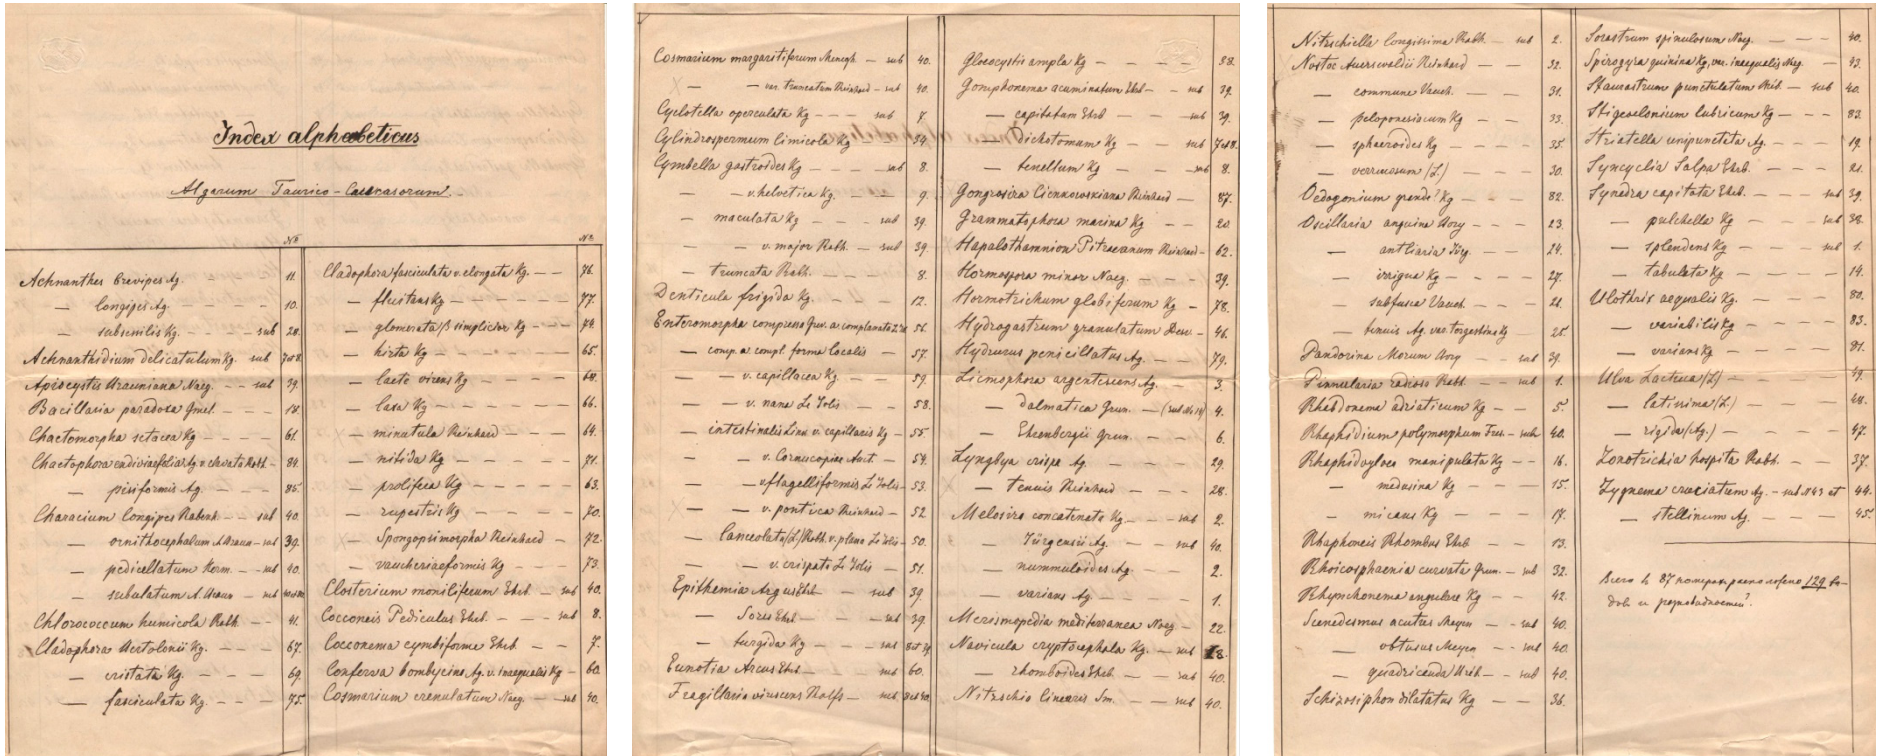 Index alphabeticus
Algarum Taurico-Caucasorum.
№
Achnanthes brevipes Ag. - 11.
— longipes Ag. - - - 10.
— subsessilis Kg. - - sub 28.
Achnanthidium delicatulum Kg. sub 7 et 8.
Apiocystis Brauniana Naeg. - - sub 39.
Bacillaria paradoxa Gmel. - - - -
Chaetomorpha setacea Kg - - - 61.
Chaetophora endiviaefolia Ag. v. clavata Roth - 84.
— pisiformis Ag. - - - 85.
Characium longipes Rabenh. - - sub 40.
— ornithocephalum A. Braun - sub 39.
— pedicellatum Herm. - - sub 40.
— subulatum A. Braun - sub
Chlorococcum humicola Rabh. - - 41.
Cladophora Bertolonii Kg. - - - 67.
— cristata Kg. - - - - 69.
— fasciculata Kg. - - - 75.
№
Cladophora fasciculata v. elongata Kg. - - 76.
— fluitans Kg - - - - - 77.
— glomerata β simplicior Kg - - 74.
— hirta Kg - - - - - 65.
— laete virens Kg - - - - 68.
— laxa Kg - - - - - 66.
× — minutula Reinhard - - - - 64.
— nitida Kg - - - - - 71.
— prolifera Kg - - - - 63.
— rupestris Kg - - - - 70.
× — Spongopsimorpha Reinhard - 72.
— vaucheriaeformis Kg - - 73.
Closterium moniliferum Ehrb. - sub 40.
Cocconeis Pediculus Ehrb. - - - sub 8.
Cocconema cymbiforme Ehrb - - 7.
Conferva bombycina Ag. v. inaequalis Kg - 60.
Cosmarium crenulatum Naeg. - - sub 40.
Cosmarium margaritiferum Menegh. - sub 40.
× — — var. truncatum Reinhard - sub 40.
Cyclotella operculata Kg - - - sub 7.
Cylindrospermum limicola Kg 34.
Cymbella gastroides Kg - - sub 8.
— — v. helvetica Kg. - - - 9.
— maculata Kg - - - sub 39.
— — v. major Rabh. - sub 39.
— truncata Rabh. - - - - 8.
Denticula frigida Kg. - - - - 12.
Enteromorpha compressa Grev. a. complanata 56.
— comp. a compl. forma localis - 57.
— — v. capillacea Kg. - - 59.
— — v. nana Le Jolis - - 58.
— intestinalis Link v. capillaris Kg - 55.
— — v. Cornucopiae Auct. - - 54.
— — v. flagelliformis Le Jolis - 53.
× — — v. pontica Reinhard - 52
— lanceolata (L.) Rabh. v. plana Le Jolis - 50.
— — v. crispata Le Jolis - 51.
Epithemia Argus Ehrb - - sub 39.
— Sorex Ehrb - - - sub 39.
— turgida Kg - - - sub 8 et 39
Eunotia Arcus Ehrb - - - sub 60.
Fragillaria virescens Ralfs - - sub 8 et 40.
Gloeocystis ampla Kg - - - - 38.
Gomphonema acuminatum Ehrb - - sub 39.
— capitatum Ehrb - - sub 39.
— dichotomum Kg - - sub 7 et 8.
— tenellum Kg - - - sub 8.
Gongrosira Cienkowskiana Reinhard - - 87.
Grammatophora marina Kg - - 20.
Hapalothamnion Pitraeanum Reinhard - 62.
Hormospora minor Naeg. - - - 39.
Hormotrichum globiferum Kg - 78.
Hydrogastrum granulatum Desv - 46.
Hydrurus penicillatus Ag. - - 79.
Licmophora argentescens Ag. - - 3.
— dalmatica Grun. - (sub № 18) 4.
— Ehrenbergii Grun. - - 6.
Lyngbya crispa Ag. - - - 29.
× — tenuis Reinhard - - - 28.
Melosira concatenata Kg - - - sub 2.
— Jürgensii Ag. - - sub 40.
— nummuloides Ag. - - - 2.
— varians Ag - - - - 1.
Merismopedia mediterranea Naeg - - 22.
Navicula cryptocephala Kg. - - sub 8.
— rhomboides Ehrb. - - sub 40.
Nitzschia linearis Sm. - - - sub 40.
Nitzschiella longissima Rabh - sub 2.
Nostoc Auerswaldii Reinhard - - 32.
— commune Vauch. - - - 31.
— peloponesiacum Kg - - 33.
— sphaeroides Kg - - - 35
— verrucosum (L.) - - - 30.
Oedogonium grande? Kg - - - 82.
Oscillaria anguina Bory - - - 23.
— antliaria Jürg. - - - 24.
— irrigua Kg - - - 27.
— subfusca Vauch. - - - 21.
— tenuis Ag. var. Tergestina Kg 25.
Pandorina Morum Bory - - sub 39.
Pinnularia radiosa Rabh. - - sub 1.
Rhabdonema adriaticum Kg - - 5.
Rhaphidium polymorphum Fres. - sub 40.
Rhaphidogloea manipulata Kg - - 16.
— medusina Kg - - 15.
— micans Kg - - 17.
Rhaphoneis Rhombus Ehrb - - 13.
Rhoicosphaenia curvata Grun. - sub 32.
Rhynchonema angulare Kg - - 42.
Scenedesmus acutus Meyen - - sub 40.
— obtusus Meyen - - sub 40.
— quadricauda Bréb. - - sub 40.
Schizosiphon dilatatus Kg - - 36.
Sorastrum spinulosum Naeg. - - - 40.
Spirogyra quinina Kg. var. inaequalis Naeg. - 43.
Staurastrum punctulatum Bréb. - sub 40.
Stigeoclonium lubricum Kg - - 83.
Striatella unipunctata Ag. - - - 19.
Syncyclia Salpa Ehrb. - - - 21.
Synedra capitata Ehrb. - - sub 39.
— pulchella Kg - - - sub 38.
— splendens Kg - - - sub 1.
— tabulata Kg - - - - 14.
Ulothrix aequalis Kg. - - - 80.
— variabilis Kg - - - 83.
— varians Kg - - - 81.
Ulva Lactuca (L.) - - - - 49.
— latissima (L.) - - - - 48.
— rigida (Ag.) - - - - 47.
Zonotrichia hospita Rabh. - - 37.
Zygnema cruciatum Ag. - sub № 43 et 44.
— stellinum Ag. - - - 45.
Всего в 87 номерах разложено 129 ви-
дов и разновидностей.